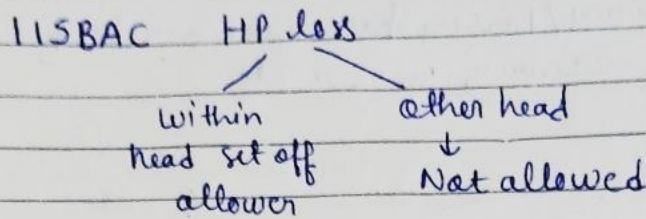 115BAC HP loss
within
head set off
allower
other head
↓
Not allowed